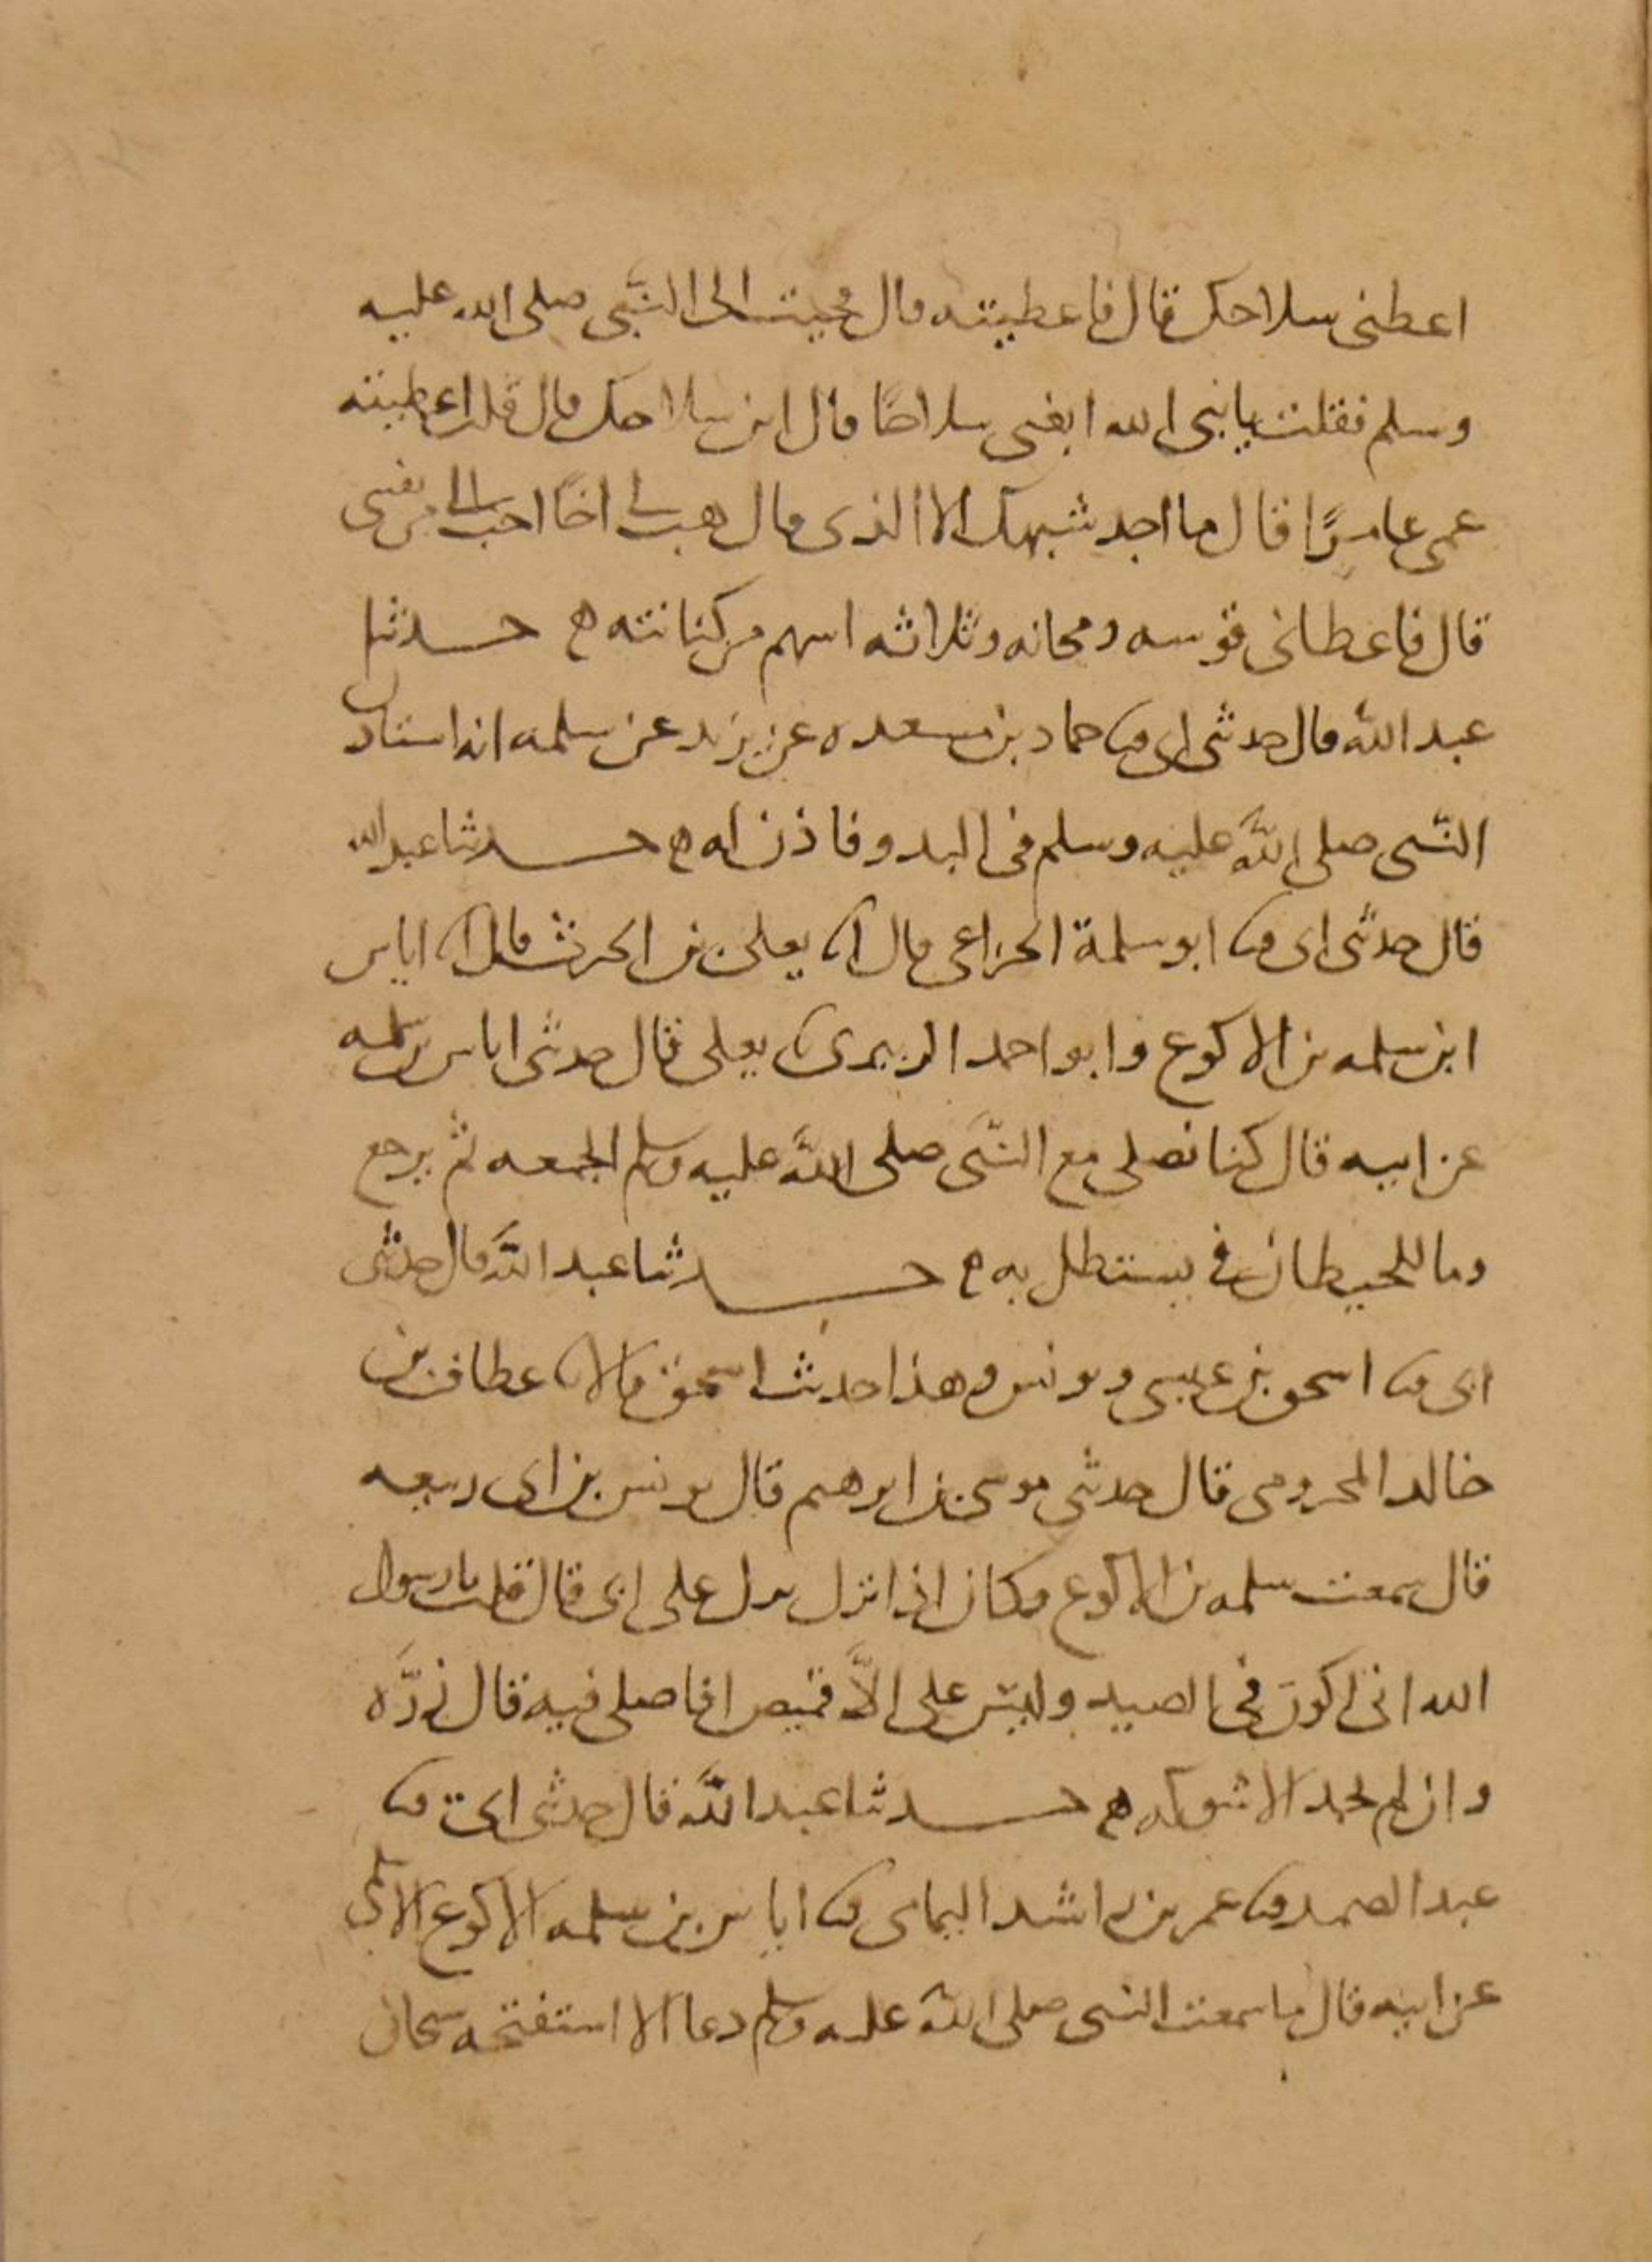 اعطنى سلاحك قال فاعطيته قال فجيت الى النبى صلى الله عليه
وسلم فقلت يا نبى الله ابغنى سلاحًا قال اين سلاحك قال قلت اعطيته
عمى عامرًا قال ما اجد شبهك الا الذى قال هب لى اخًا احب الى من نفسى
قال فاعطانى قوسه ومجانه وثلاثه اسهم من كنانته ه حدثنا
عبد الله قال حدثنى ابى ثنا حماد بن مسعده عن يزيد عن سلمه انه استاذن
النبى صلى الله عليه وسلم فى البدو فاذن له ه حدثنا عبد الله
قال حدثنى ابى ثنا ابو سلمة الخزاعى قال انا يعلى بن الحرث قال انا اياس
ابن سلمه بن الاكوع وابو احمد الزبيرى ثنا يعلى قال حدثنى اياس بن سلمه
عن ابيه قال كنا نصلى مع النبى صلى الله عليه وسلم الجمعه ثم نرجع
وما للحيطان فى يستظل به ه حدثنا عبد الله قال حدثنى
ابى ثنا اسحق بن عيسى ويونس وهذا حديث اسحق قالا ثنا عطاف بن
خالد المخزومى قال حدثنى موسى بن ابرهيم قال يونس بن ابى ربيعه
قال سمعت سلمه بن الاكوع وكان اذا نزل نزل على ابى قال قلت يا رسول
الله انى اكون فى الصيد وليس على الاَّ قميص افاصلى فيه قال زرَّه
وان لم تجد الا شوكه ه حدثنا عبد الله قال حدثنى ابى ثنا
عبد الصمد ثنا عمر بن راشد اليمامى ثنا اياس بن سلمه الاكوع الاسلمى
عن ابيه قال ما سمعت النبى صلى الله عليه وسلم دعا الا استفتحه سبحان